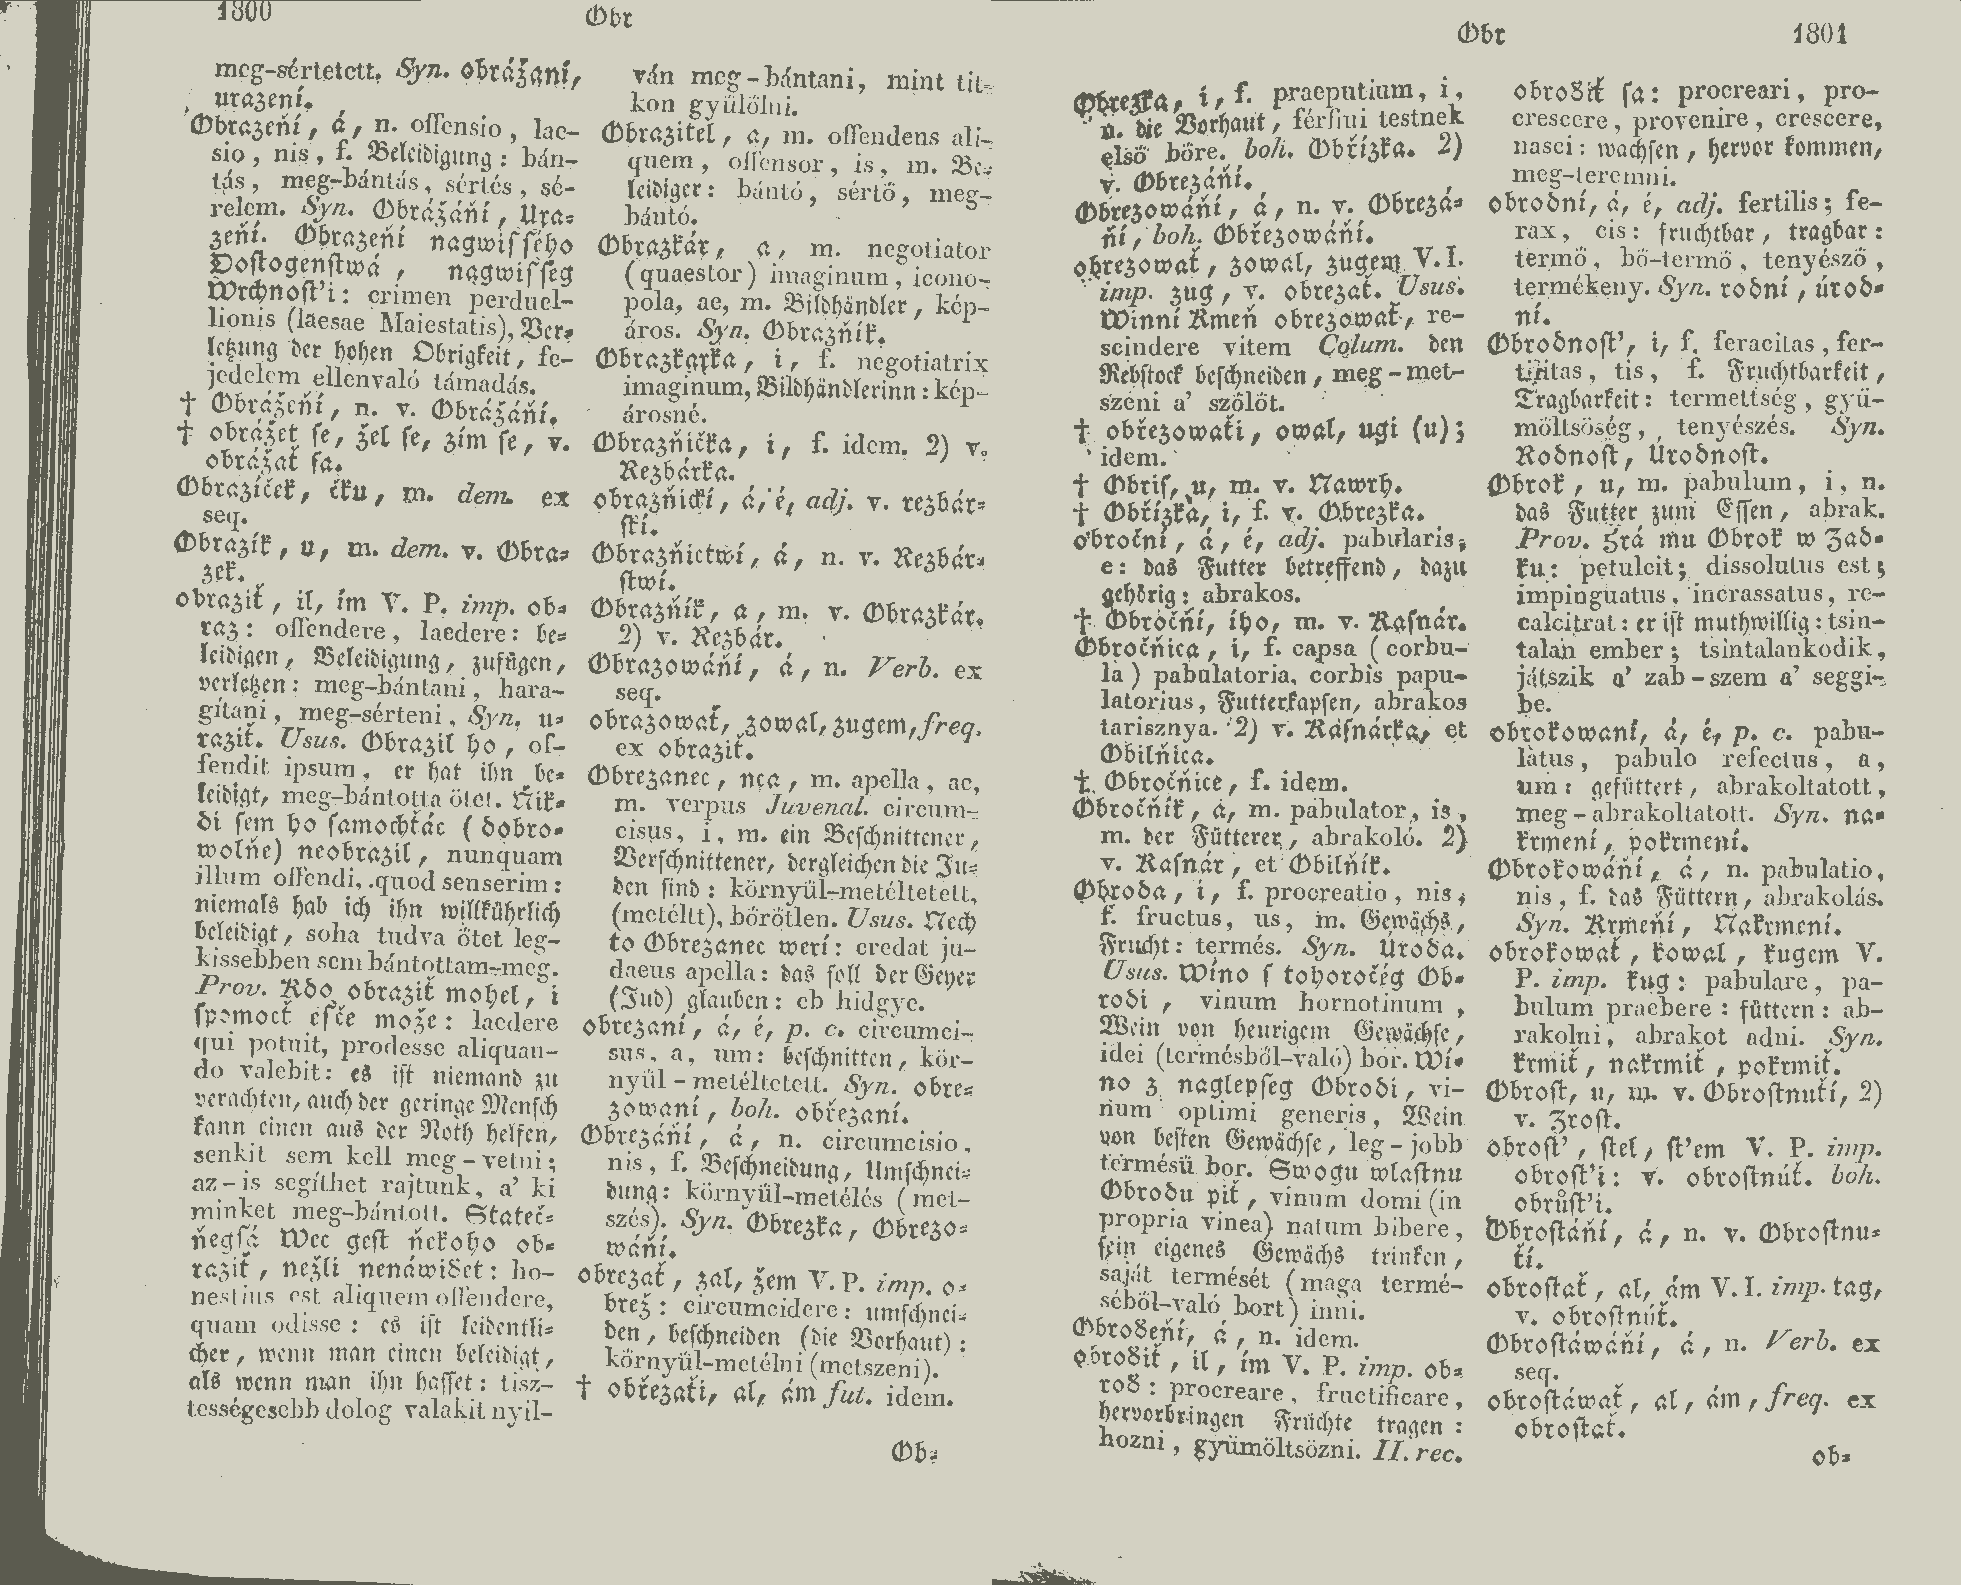 1800
Obr
meg-sértetett. Syn. obrážaní,
urazení.
Obrazeňí, á, n. offensio, lae-
sio, nis, f. Beleidigung: bán-
tás, meg-bántás, sértés, sé-
relem. Syn. Obrážáňí, Ura-
zeňí. Obrazeňí nagwisseho
Dostogenstwá, nagwisseg
Wrchnosť'i: crimen perduel-
lionis (laesae Maiestatis), Ver-
letzung der hohen Obrigkeit, fe-
jedelem ellenvaló támadás.
† Obrážeňí, n. v. Obrážáňí.
† obrážet se, žel se, zím se, v.
obrážať sa.
Obrazíček, čku, m. dem. ex
seq.
Obrazík, u, m. dem. v. Obra-
zek.
obraziť, il, ím V. P. imp. ob-
raz: offendere, laedere: be-
leidigen, Beleidigung, zufügen,
verletzen: meg-bántani, hara-
gítani, meg-sérteni. Syn. u-
raziť. Usus. Obrazil ho, of-
fendit ipsum, er hat ihn be-
leidigt, meg-bántotta ötet. Ňik-
di sem ho samochťác (dobro-
wolňe) neobrazil, nunquam
illum offendi, quod senserim:
niemals hab ich ihn willkührlich
beleidigt, soha tudva ötet leg-
kissebben sem bántottam-meg.
Prov. Kdo obraziť mohel, i
spomocť esče može: laedere
qui potuit, prodesse aliquan-
do valebit: es ist niemand zu
verachten, auch der geringe Mensch
kann einen aus der Noth helfen,
senkit sem kell meg-vetni;
az-is segíthet rajtunk, a' ki
minket meg-bántott. Stateč-
ňegsá Wec gest ňekoho ob-
raziť, nežli nenáwiďet: ho-
nestius est aliquem offendere,
quam odisse: es ist leidentli-
cher, wenn man einen beleidigt,
als wenn man ihn hasset: tisz-
tességesebb dolog valakit nyil-
ván meg-bántani, mint tit-
kon gyülölni.
Obrazitel, a, m. offendens ali-
quem, offensor, is, m. Be-
leidiger: bántó, sértö, meg-
bántó.
Obrazkár, a, m. negotiator
(quaestor) imaginum, icono-
pola, ae, m. Bildhändler, kép-
áros. Syn. Obrazňík.
Obrazkarka, i, f. negotiatrix
imaginum, Bildhändlerinn: kép-
árosné.
Obrazňička, i, f. idem. 2) v.
Rezbárka.
obrazňickí, á, é, adj. v. rezbár-
skí.
Obrazňictwí, á, n. v. Rezbár-
stwí.
Obrazňík, a, m. v. Obrazkár.
2) v. Rezbár.
Obrazowáňí, á, n. Verb. ex
seq.
obrazowať, zowal, zugem, freq.
ex obraziť.
Obrezanec, nca, m. apella, ae,
m. verpus Juvenal. circum-
cisus, i, m. ein Beschnittener,
Verschnittener, dergleichen die Ju-
den sind: környül-metéltetett,
(metéltt), börötlen. Usus. Nech
to Obrezanec werí: credat ju-
daeus apella: das soll der Geyer
(Jud) glauben: eb hidgye.
obrezaní, á, é, p. c. circumci-
sus, a, um: beschnitten, kör-
nyül-metéltetett. Syn. obre-
zowaní, boh. obřezaní.
Obrezáňí, á, n. circumcisio,
nis, f. Beschneidung, Umschnei-
dung: környül-metélés (met-
szés). Syn. Obrezka, Obrezo-
wáňí.
obrezať, zal, žem V. P. imp. o-
brež: circumcidere: umschnei-
den, beschneiden (die Vorhaut):
környül-metélni (metszeni).
† obřezaťi, al, ám fut. idem.
Ob-
Obr
1801
Obrezka, i, f. praeputium, i,
n. die Vorhaut, férfiui testnek
elsö böre. boh. Obřízka. 2)
v. Obrezáňí.
Obrezowáňí, á, n. v. Obrezá-
ňí, boh. Obřezowáňí.
obrezowať, zowal, zugem V. I.
imp. zug, v. obrezať. Usus.
Winní Kmeň obrezowať, re-
scindere vitem Colum. den
Rebstock beschneiden, meg-met-
szeni a' szölöt.
† obřezowaťi, owal, ugi (u);
idem.
† Obris, u, m. v. Nawrh.
† Obřízka, i, f. v. Obrezka.
obroční, á, é, adj. pabularis,
e: das Futter betreffend, dazu
gehörig: abrakos.
† Obročňí, ího, m. v. Kasnár.
Obročňica, i, f. capsa (corbu-
la) pabulatoria, corbis papu-
latorius, Futterkapsen, abrakos
tarisznya. 2) v. Kasnárka, et
Obilňica.
† Obročňice, f. idem.
Obročňík, a, m. pabulator, is,
m. der Fütterer, abrakoló. 2)
v. Kasnár, et Obilňík.
Obroda, i, f. procreatio, nis,
f. fructus, us, m. Gewächs,
Frucht: termés. Syn. Uroda.
Usus. Wíno s tohoročég Ob-
rodi, vinum hornotinum,
Wein von heurigem Gewächse,
idei (termésböl-való) bor. Wí-
no z naglepseg Obrodi, vi-
num optimi generis, Wein
von besten Gewächse, leg-jobb
termésü bor. Swogu wlastnu
Obrodu piť, vinum domi (in
propria vinea) natum bibere,
sein eigenes Gewächs trinken,
saját termését (maga termé-
séböl-való bort) inni.
Obroďeňí, á, n. idem.
obroďiť, il, ím V. P. imp. ob-
roď: procreare, fructificare,
hervorbringen Früchte tragen:
hozni, gyümöltsözni. II. rec.
obroďiť sa: procreari, pro-
crescere, provenire, crescere,
nasci: wachsen, hervor kommen,
meg-teremni.
obrodní, á, é, adj. fertilis; fe-
rax, cis: fruchtbar, tragbar:
termö, bö-termö, tenyészö,
termékeny. Syn. rodní, úrod-
ní.
Obrodnosť', i, f. feracitas, fer-
tilitas, tis, f. Fruchtbarkeit,
Tragbarkeit: termettség, gyü-
möltsöség, tenyészés. Syn.
Rodnost, Urodnost.
Obrok, u, m. pabulum, i, n.
das Futter zum Essen, abrak.
Prov. Hrá mu Obrok w Zad-
ku: petulcit; dissolutus est;
impinguatus, incrassatus, re-
calcitrat: er ist muthwillig: tsin-
talan ember; tsintalankodik,
játszik a' zab-szem a' seggi-
be.
obrokowaní, á, é, p. c. pabu-
latus, pabulo refectus, a,
um: gefüttert, abrakoltatott,
meg-abrakoltatott. Syn. na-
krmení, pokrmení.
Obrokowáňí, á, n. pabulatio,
nis, f. das Füttern, abrakolás.
Syn. Krmeňí, Nakrmení.
obrokowať, kowal, kugem V.
P. imp. kug: pabulare, pa-
bulum praebere: füttern: ab-
rakolni, abrakot adni. Syn.
krmiť, nakrmiť, pokrmiť.
Obrost, u, m. v. Obrostnuťí, 2)
v. Zrost.
obrosť', stel, sť'em V. P. imp.
obrosť'i: v. obrostnúť. boh.
obrůsť'i.
Obrostáňí, á, n. v. Obrostnu-
ťí.
obrostať, al, ám V. I. imp. tag,
v. obrostnúť.
Obrostáwáňí, á, n. Verb. ex
seq.
obrostáwať, al, ám, freq. ex
obrostať.
ob-